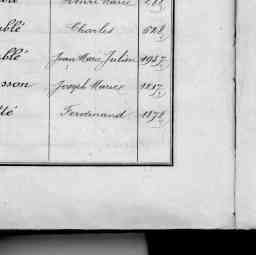 Henri Marie
blé Charles 528
blé Jean Marie Julien 1957
sson Joseph Marie 1817
té Ferdinand 1878